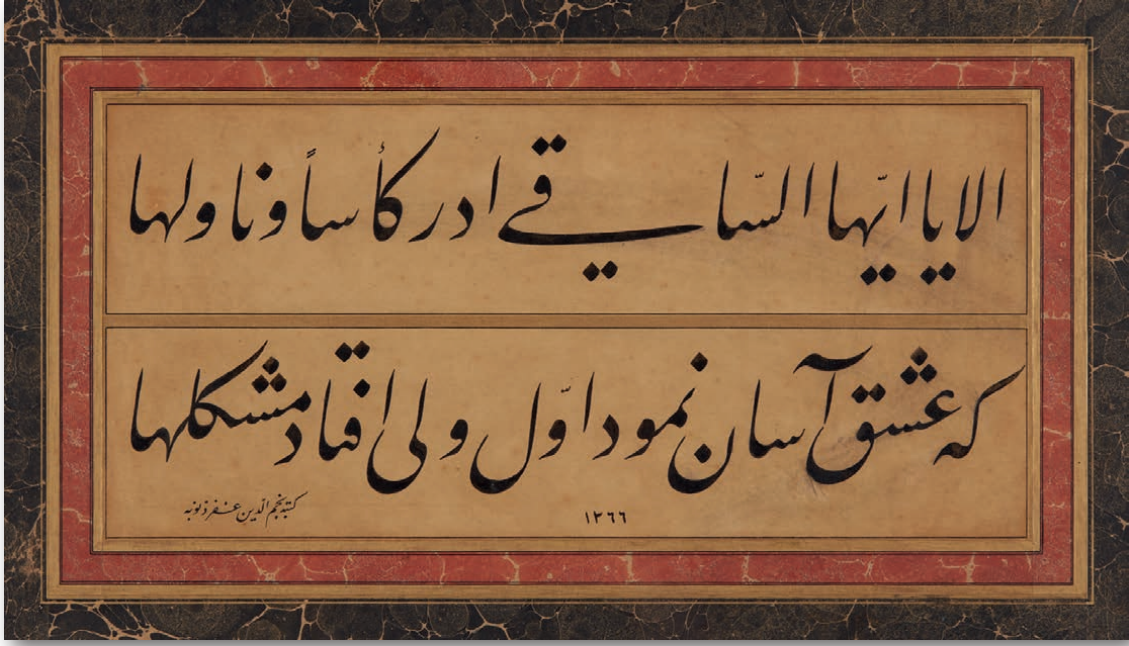 الا یا ایّها السّاقے ادر کأساً و ناولها
که عشق آسان نمود اوّل ولی افتاد مشکلها
۱۳۶۶
کتبه نجم الدّین غفر ذنوبه